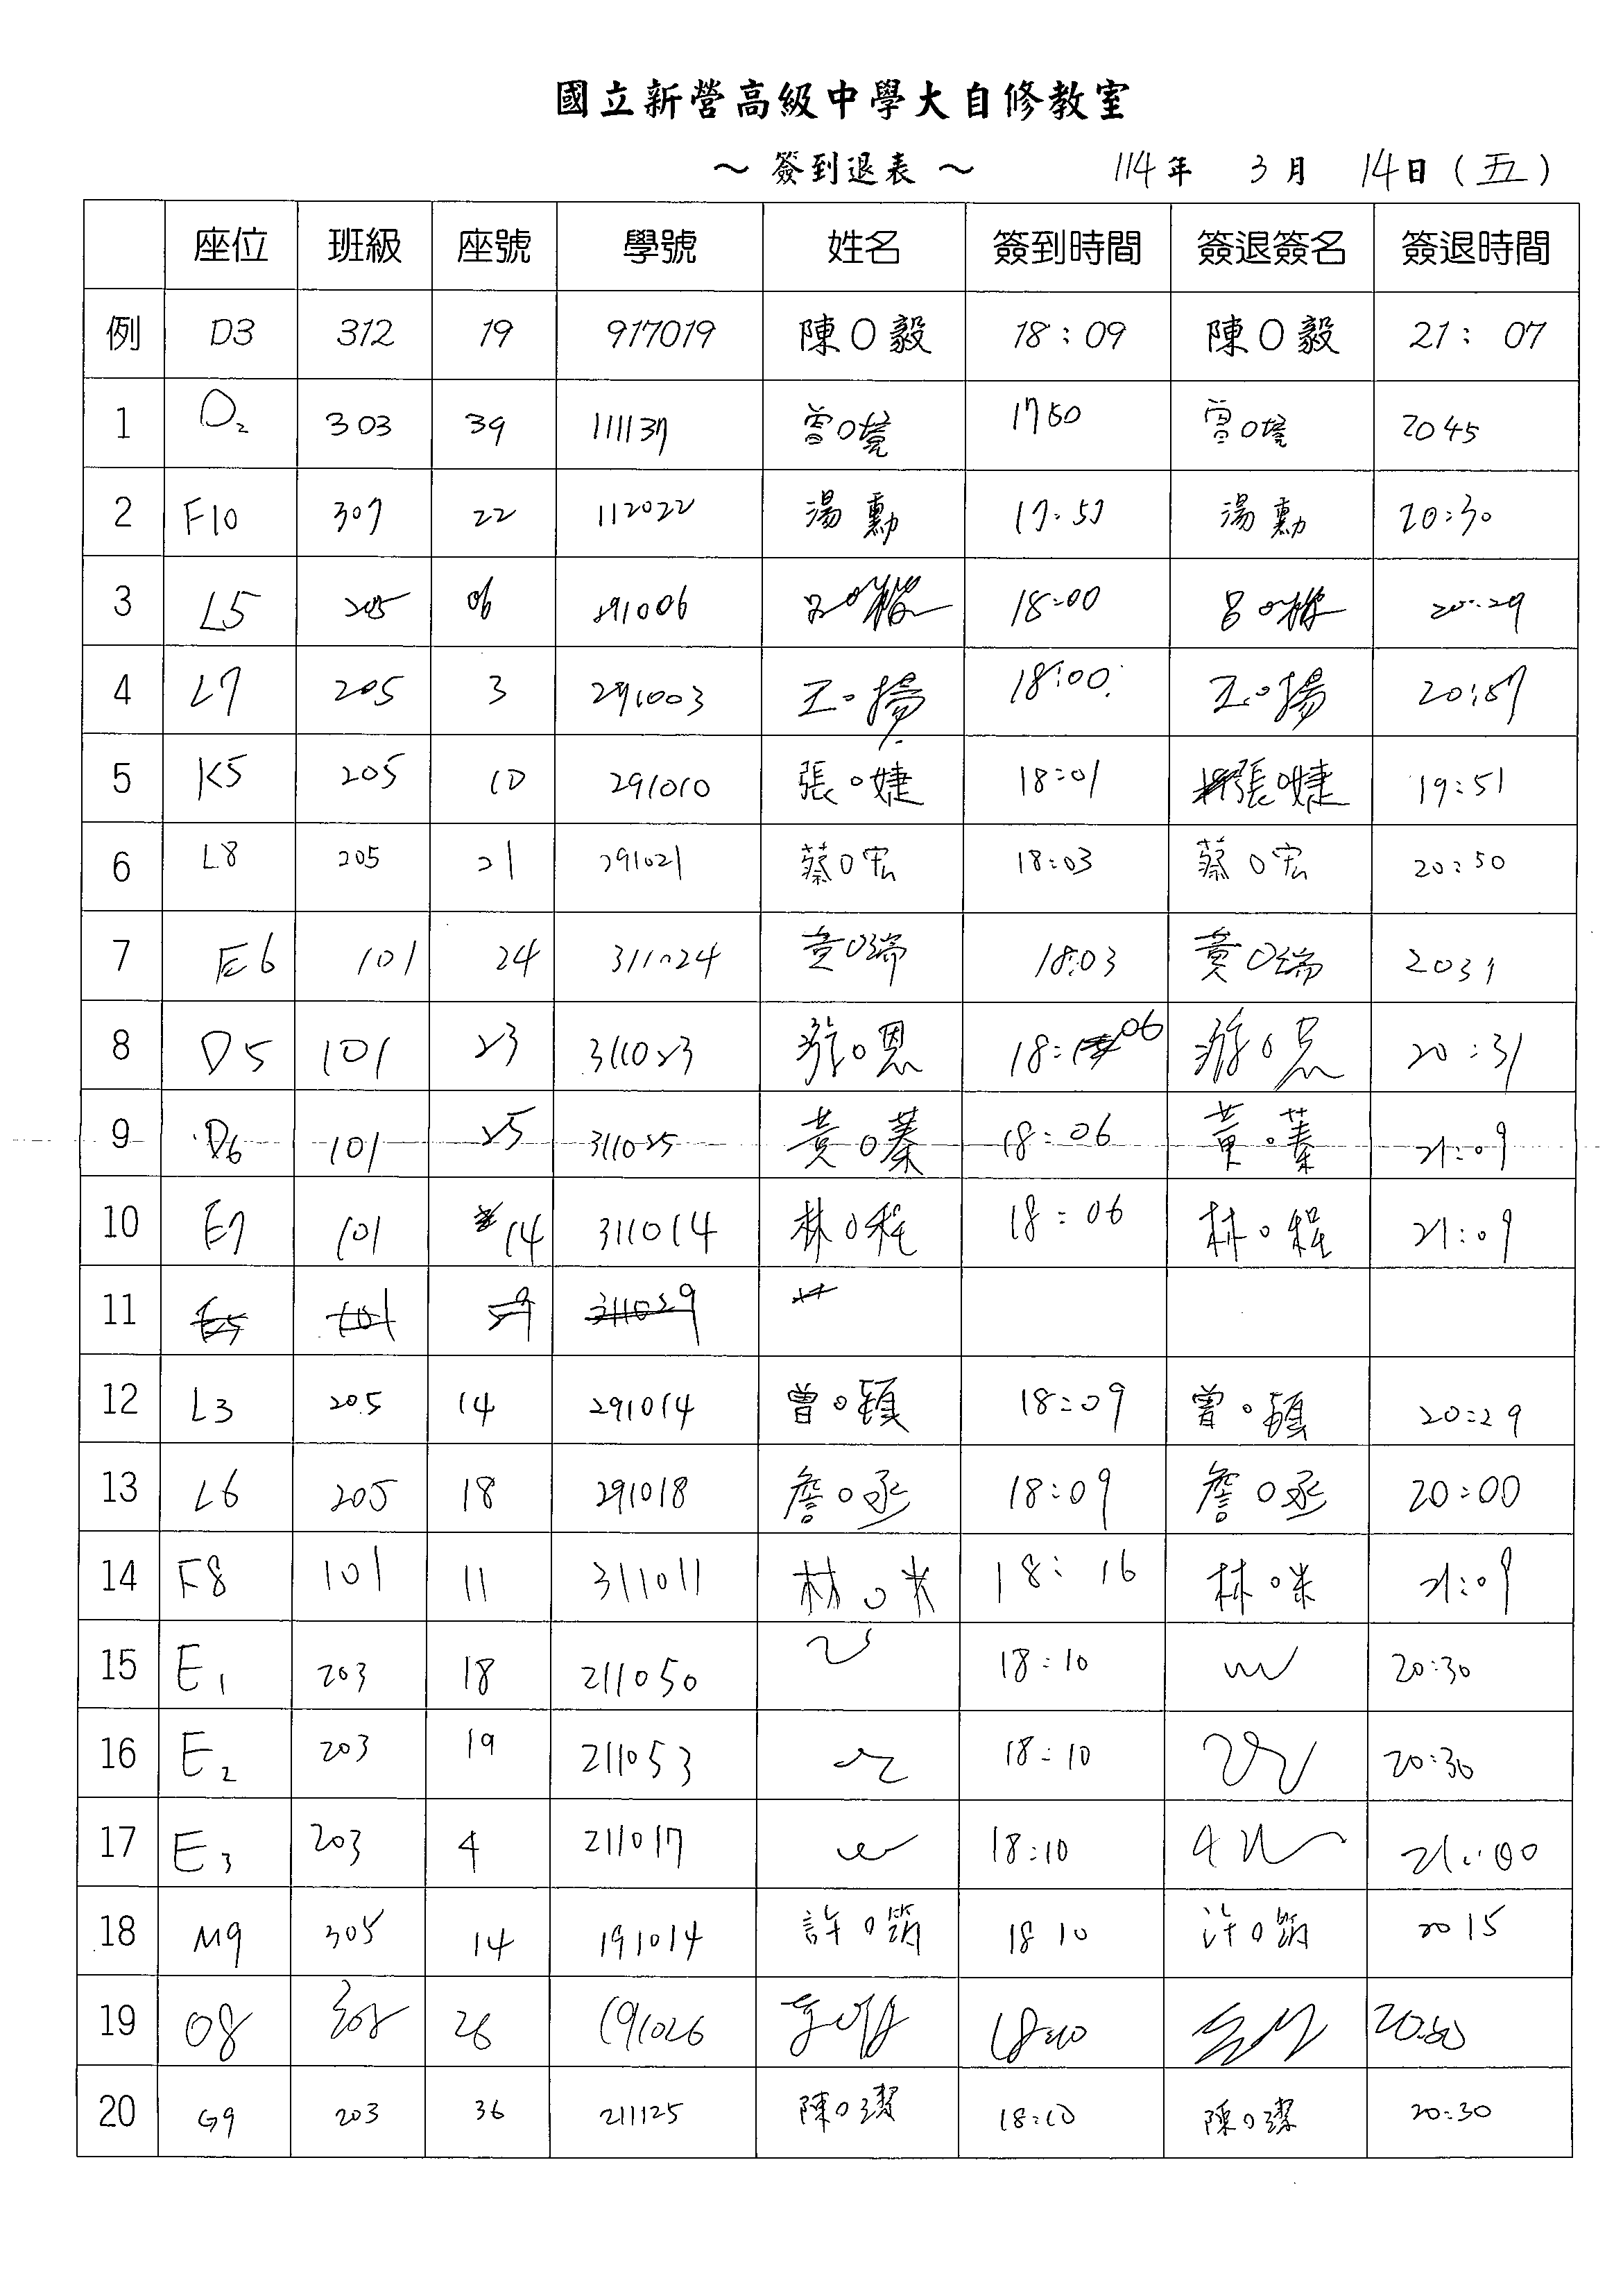 國立新營高級中學大自修教室
～ 簽到退表 ～ 114年 3月 14日(五)
座位 班級 座號 學號 姓名 簽到時間 簽退簽名 簽退時間
例 D3 312 19 917019 陳O毅 18:09 陳O毅 21:07
1 D2 303 39 111137 曾O境 1750 曾O境 2045
2 F10 307 22 112022 湯勳 17:57 湯勳 20:30
3 L5 205 06 291006 呂O 18:00 呂O 20:29
4 L7 205 3 291003 王O揚 18:00 王O揚 20:57
5 K5 205 10 291010 張O婕 18:01 張O婕 19:51
6 L8 205 21 291021 蔡O宏 18:03 蔡O宏 20:50
7 E6 101 24 311024 黃O瑞 18:03 黃O瑞 2031
8 D5 101 23 311023 游O恩 18:06 游O恩 20:31
9 D6 101 25 311025 黃O蓁 18:06 黃O蓁 21:09
10 E7 101 14 311014 林O程 18:06 林O程 21:09
11 E5 101 29 311029
12 L3 205 14 291014 曾O穎 18:09 曾O穎 20:29
13 L6 205 18 291018 詹O丞 18:09 詹O丞 20:00
14 F8 101 11 311011 林O米 18:16 林O米 21:09
15 E1 203 18 211050 18:10 20:30
16 E2 203 19 211053 18:10 20:30
17 E3 203 4 211017 18:10 21:00
18 M9 305 14 191014 許O筑 18 10 許O筑 20 15
19 O8 305 26 191026 18:10 20:50
20 G9 203 36 211125 陳O潔 18:10 陳O潔 20:30